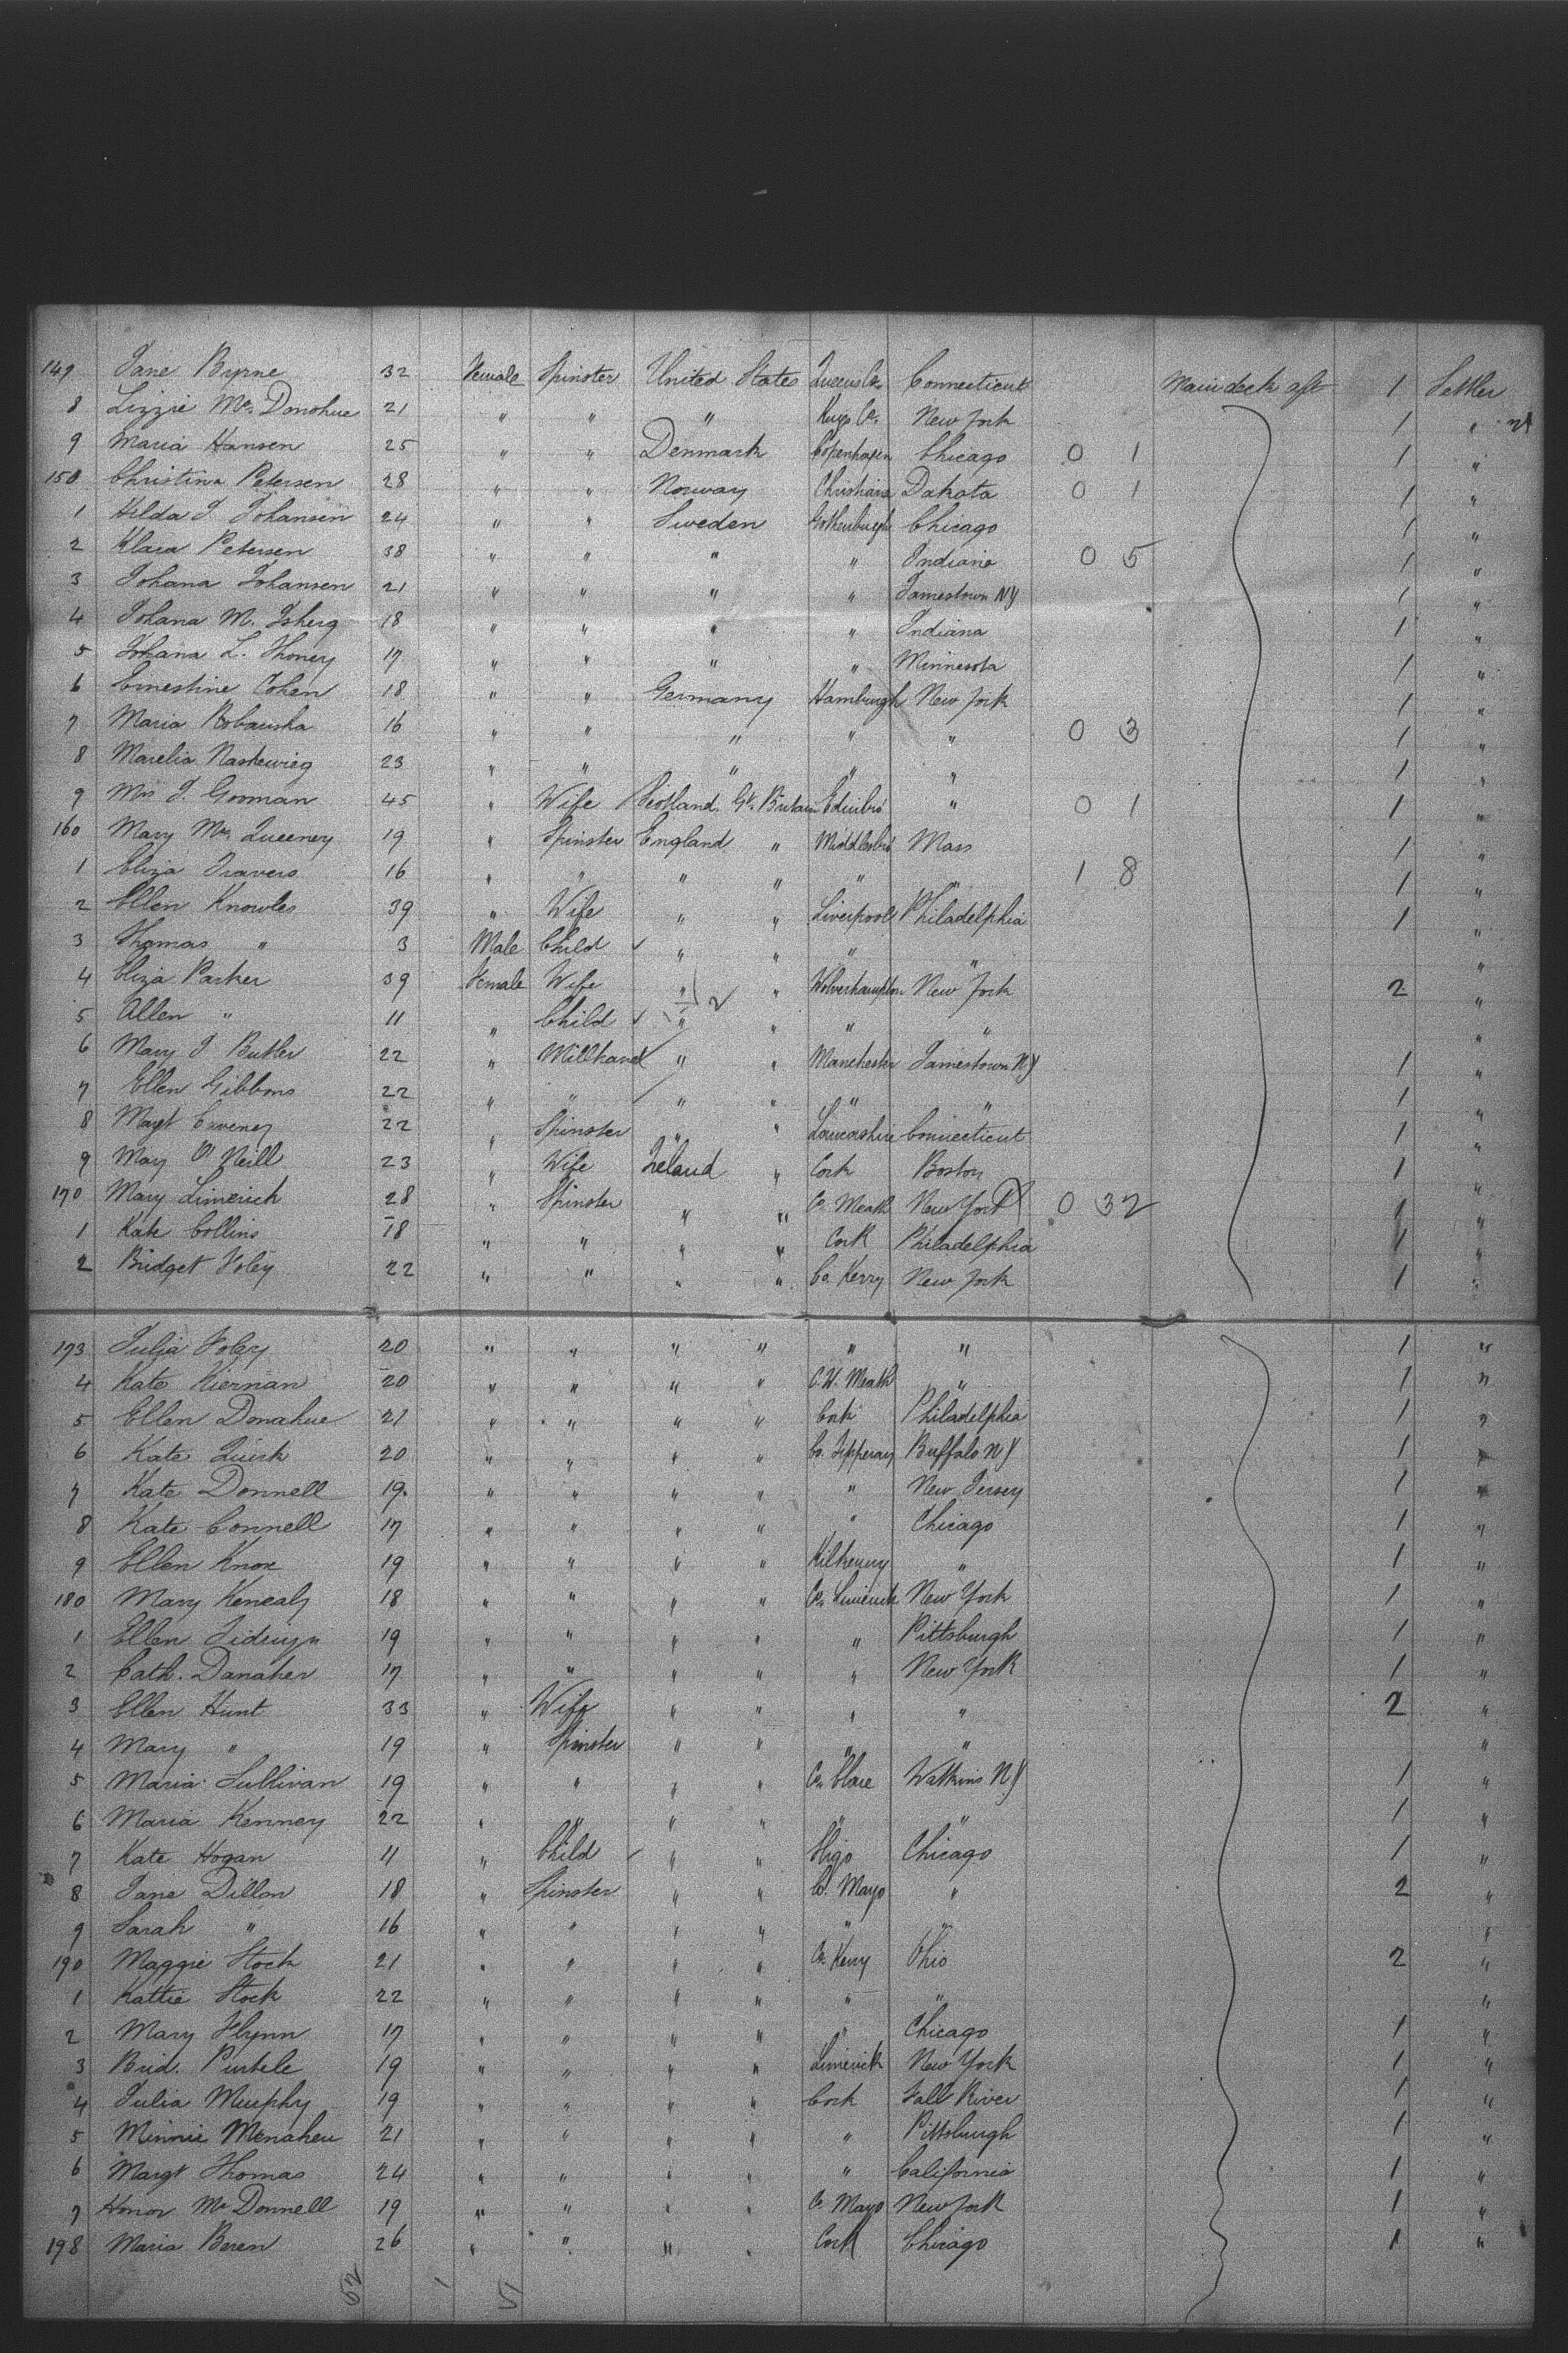 149 Jane Byrne 32 Female Spinster United States Queens Co. Connecticut Main deck aft 1 Settler
8 Lizzie Mc. Donohue 21 " " " Kings Co. New York 1 "
9 Maria Hansen 25 " " Denmark Copenhagen Chicago 0 1 1 "
150 Christina Petersen 28 " " Norway Christiana Dakota 0 1 1 "
1 Hilda J. Johansen 24 " " Sweden Gothenburgh Chicago 1 "
2 Klara Petersen 38 " " " " Indiana 0 5 1 "
3 Johana Johansen 21 " " " " Jamestown NY 1 "
4 Johana M. Isberg 18 " " " " Indiana 1 "
5 Johana L. Thoney 17 " " " " Minnesota 1 "
6 Ernestine Cohen 18 " " Germany Hamburgh New York 1 "
7 Maria 16 " " " " " 0 3 1 "
8 23 " " " " " 1 "
9 Mrs J. Gorman 45 " Wife Scotland Gt. Britain Edinbro " 0 1 1 "
160 Mary Mc. Queeney 19 " Spinster England " Middlesbro Mass 1 "
1 Eliza Travers 16 " " " " " " 1 8 1 "
2 Ellen Knowles 39 " Wife " " Liverpool Philadelphia 1 "
3 Thomas " 3 Male Child " " " " "
4 Eliza Parker 39 Female Wife " " Wolverhampton New York 2 "
5 Allen " 11 " Child " " " " "
6 Mary J Butler 22 " Millhand " " Manchester Jamestown NY 1 "
7 Ellen Gibbons 22 " " " " " " 1 "
8 Magt 22 " Spinster " " Lancashire Connecticut 1 "
9 May O'Neill 23 " Wife Ireland " Cork Boston 1 "
170 Mary Limerick 28 " Spinster " " Co. Meath New York 0 32 1 "
1 Kate Collins 18 " " " " Cork Philadelphia 1 "
2 Bridget Foley 22 " " " " Co. Kerry New York 1 "
173 Julia Foley 20 " " " " " " 1 "
4 Kate Kiernan 20 " " " " C. W. Meath " 1 "
5 Ellen Donahue 21 " " " " Cork Philadelphia 1 "
6 Kate Quirk 20 " " " " Co. Tipperary Buffalo NY 1 "
7 Kate Donnell 19 " " " " " New Jersey 1 "
8 Kate Connell 17 " " " " " Chicago 1 "
9 Ellen Knox 19 " " " " Kilkenny " 1 "
180 Mary Kenealy 18 " " " " Co. Limerick New York 1 "
1 Ellen 19 " " " " " Pittsburgh 1 "
2 Cath. Danaher 17 " " " " " New York 1 "
3 Ellen Hunt 33 " Wife " " " " 2 "
4 Mary " 19 " Spinster " " " " "
5 Maria Sullivan 19 " " " " Co. Clare Watkins NY 1 "
6 Maria Kenney 22 " " " " " " 1 "
7 Kate Hogan 11 " Child " " Sligo Chicago 1 "
8 Jane Dillon 18 " Spinster " " Co. Mayo " 2 "
9 Sarah " 16 " " " " " " "
190 Maggie Stock 21 " " " " Co. Kerry Ohio 2 "
1 Kattie Stock 22 " " " " " " "
2 Mary Flynn 17 " " " " " Chicago 1 "
3 Brid. 19 " " " " Limerick New York 1 "
4 Julia Murphy 19 " " " " Cork Fall River 1 "
5 Minnie 21 " " " " " Pittsburgh 1 "
6 Margt Thomas 24 " " " " " California 1 "
7 Honor Mc Donnell 19 " " " " Co. Mayo New York 1 "
198 Maria Beren 26 " " " " Cork Chicago 1 "
52